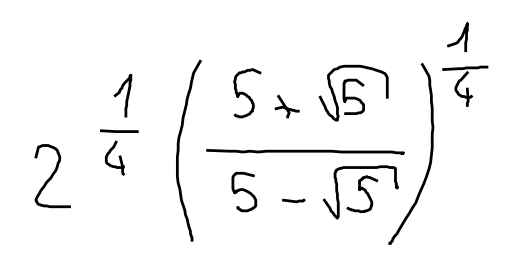 2^{\frac{1}{4}} \left( \frac{5 + \sqrt{5}}{5 - \sqrt{5}} \right)^{\frac{1}{4}}